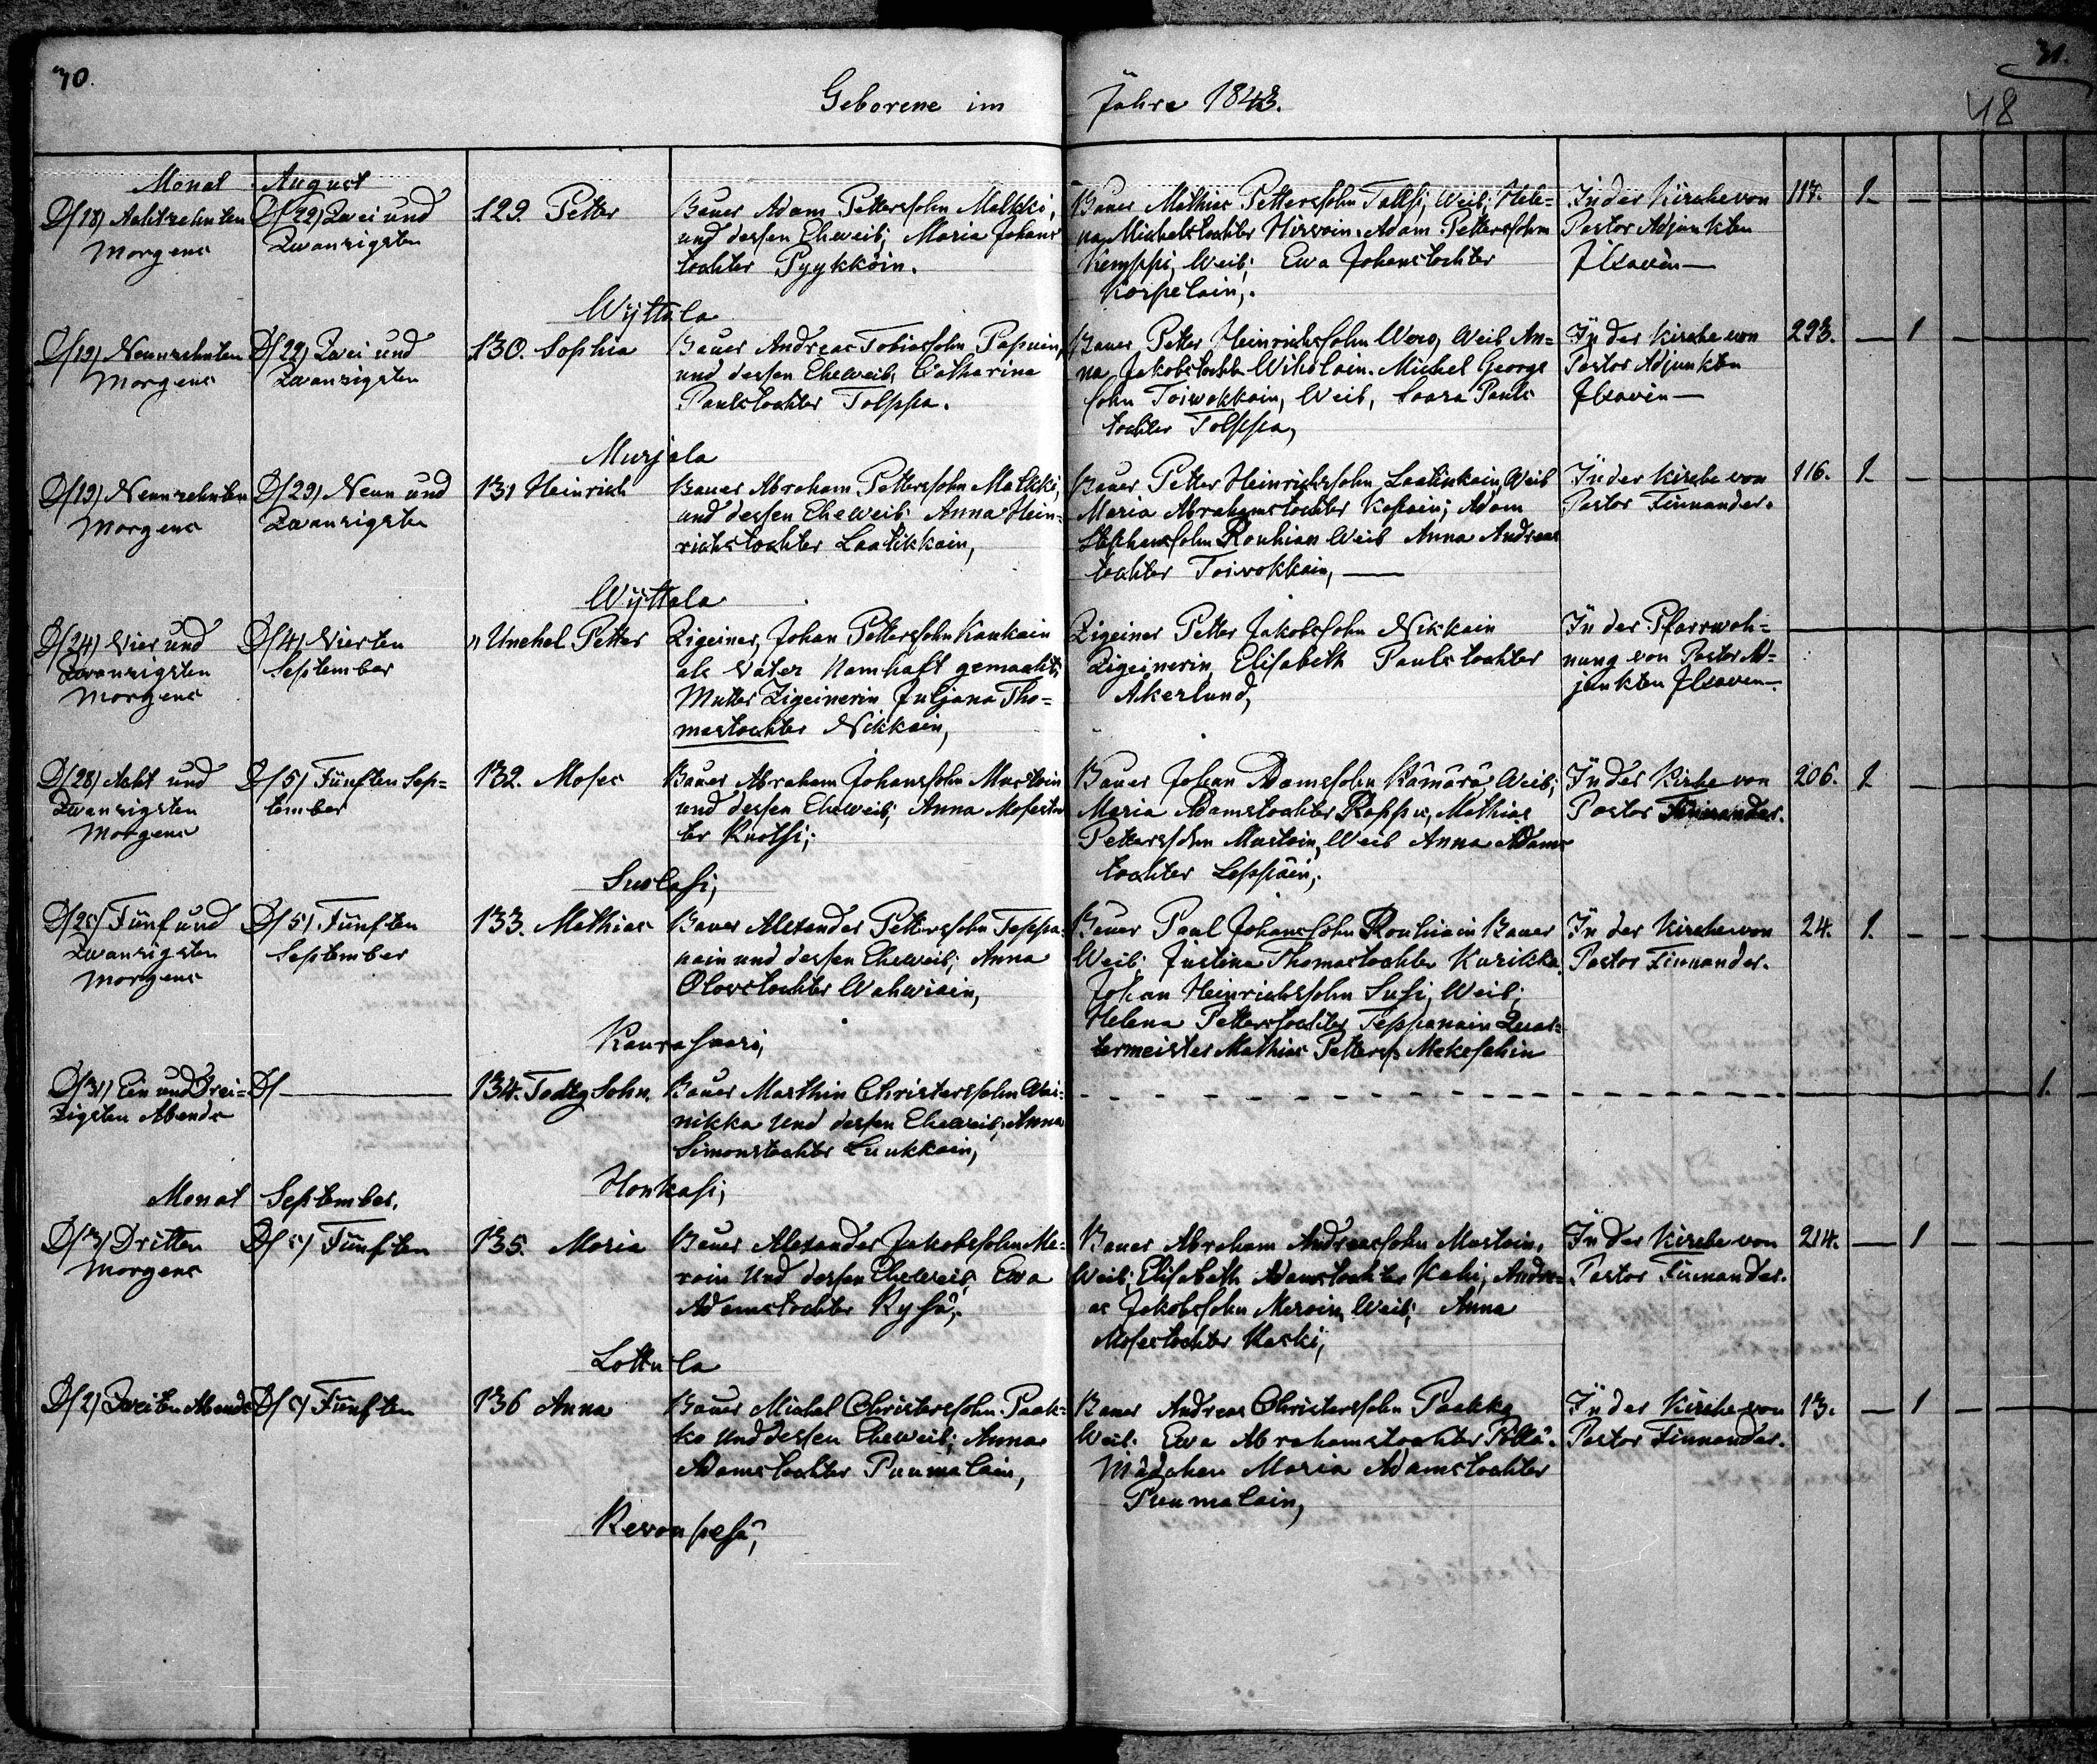 30.
31.
Geborene im Jahre 1843.
48
Monat August
D/18) Achtzehnten
Morgens
D/22) Zwei und
Zwanzigsten
129. Petter
Bauer Adam Petterssohn Malkki,
und dessen Eheweib; Maria Johans
tochter Pyykköin.
Bauer Mathias Petterssohn Talksi, Weib; Hele=
na Michelstochter Hirvoin. Adam Petterssohn
Kemppi, Weib; Ewa Johanstochter
Korpelain,.
In der Kirche von
Pastor Adjunkten
117. 1. —
Wyttala
D/19) Neunzehnten
Morgens
D/22) Zwei und
Zwanzigsten
130. Sophia
Bauer Andreas Tobiassohn Papuin,
und dessen Eheweib, Catharina
Paulstochter Tolppa.
Bauer Petter Heinrichssohn Weib An=
na Jakobstocht. Wiholain. Michel George
sohn Toiwokkain, Weib, Saara Pauls
tochter Tolppa,
In der Kirche von
Pastor Adjunkten
293. — 1 —
Murjala
D/19) Neunzehnten
Morgens
D/29) Neun und
Zwanzigsten
131 Heinrich
Bauer Abraham Petterssohn Malkki,
und dessen Eheweib: Anna Hein=
richstochter Laatikkain,
Bauer Petter Heinrichssohn Laatikkain, Weib
Maria Abrahamstochter Kapiain; Adam
Stephanssohn Rouhiain Weib Anna Andreas
tochter Toiwokkain, —
In der Kirche von
Pastor Finnander.
116. 1. —
Wyttala
D/24) Vier und
Zwanzigsten
Morgens
D/4) Vierten
September
" Unehel Petter
Zigeiner, Johan Petterssohn Kaukain
als Vater Namhaft gemacht,
Mutter Zigeinerin Juljana Tho=
mastochter Nikkain,
Zigeiner Petter Jakobssohn Nikkain
Zigeinerin, Elisabeth Paulstochter
Åkerlund,
In der Pfarrwoh=
nung von Pastor Ad=
junkten
D/28) Acht und
Zwanzigsten
Morgens
D/5) Fünften Sep=
tember
132. Moses
Bauer Abraham Johanssohn Mustoin
und dessen Eheweib; Anna Mosestoch
ter Ruotsi;
Bauer Johan Adamssohn Kämärä, Weib;
Maria Adamstochter Rappu, Mathias
Petterssohn Mustoin, Weib Anna Adams
tochter Leppäin;
In der Kirche von
Pastor Finnander.
206. 1. —
D/25) Fünf und
Zwanzigsten
Morgens
D/5) Fünften
September
133. Mathias
Bauer Alexander Petterssohn Teppa=
nain und dessen Eheweib; Anna
Olovstochter Wahwiain,
Bauer Paul Johanssohn Rouhiain Bauer
Weib; Justina Thomastochter Kurikka.
Johan Heinrichssohn Susi, Weib;
Helena Petterstochter Teppanain Quar=
termeister Mathias Petterss.
In der Kirche von
Pastor Finnander.
24. 1. —
D/31) Ein und Drei=
zigsten Abends
D/ —
134. Todtg Sohn.
Bauer Marthin Christerssohn Wai=
nikka und dessen Eheweib; Anna
Simonstochter Luukkain,
1.
Honkasi;
Monat September.
D/3) Dritten
Morgens
D/5) Fünften
135. Maria
Bauer Alexander Jakobssohn Me=
roin und dessen Eheweib; Ewa
Adamstochter Rysä;
Bauer Abraham Andreassohn Mustoin.
Weib; Elisabeth Adamstochter Andre=
as Jakobssohn Meroin, Weib; Anna
Mosestochter Kaski;
In der Kirche von
Pastor Finnander.
214. — 1 —
Lottula
D/2) Zweiten Abends
D/5) Fünften
136 Anna
Bauer Michel Christerssohn Paak=
ko und dessen Eheweib; Anna
Adamstochter Puumalain,
Bauer Andreas Christerssohn Paakko
Weib. Ewa Abrahamstochter Pöllä.
Mädchen Maria Adamstochter
Puumalain,
In der Kirche von
Pastor Finnander.
13. — 1 —
Revonpesä;